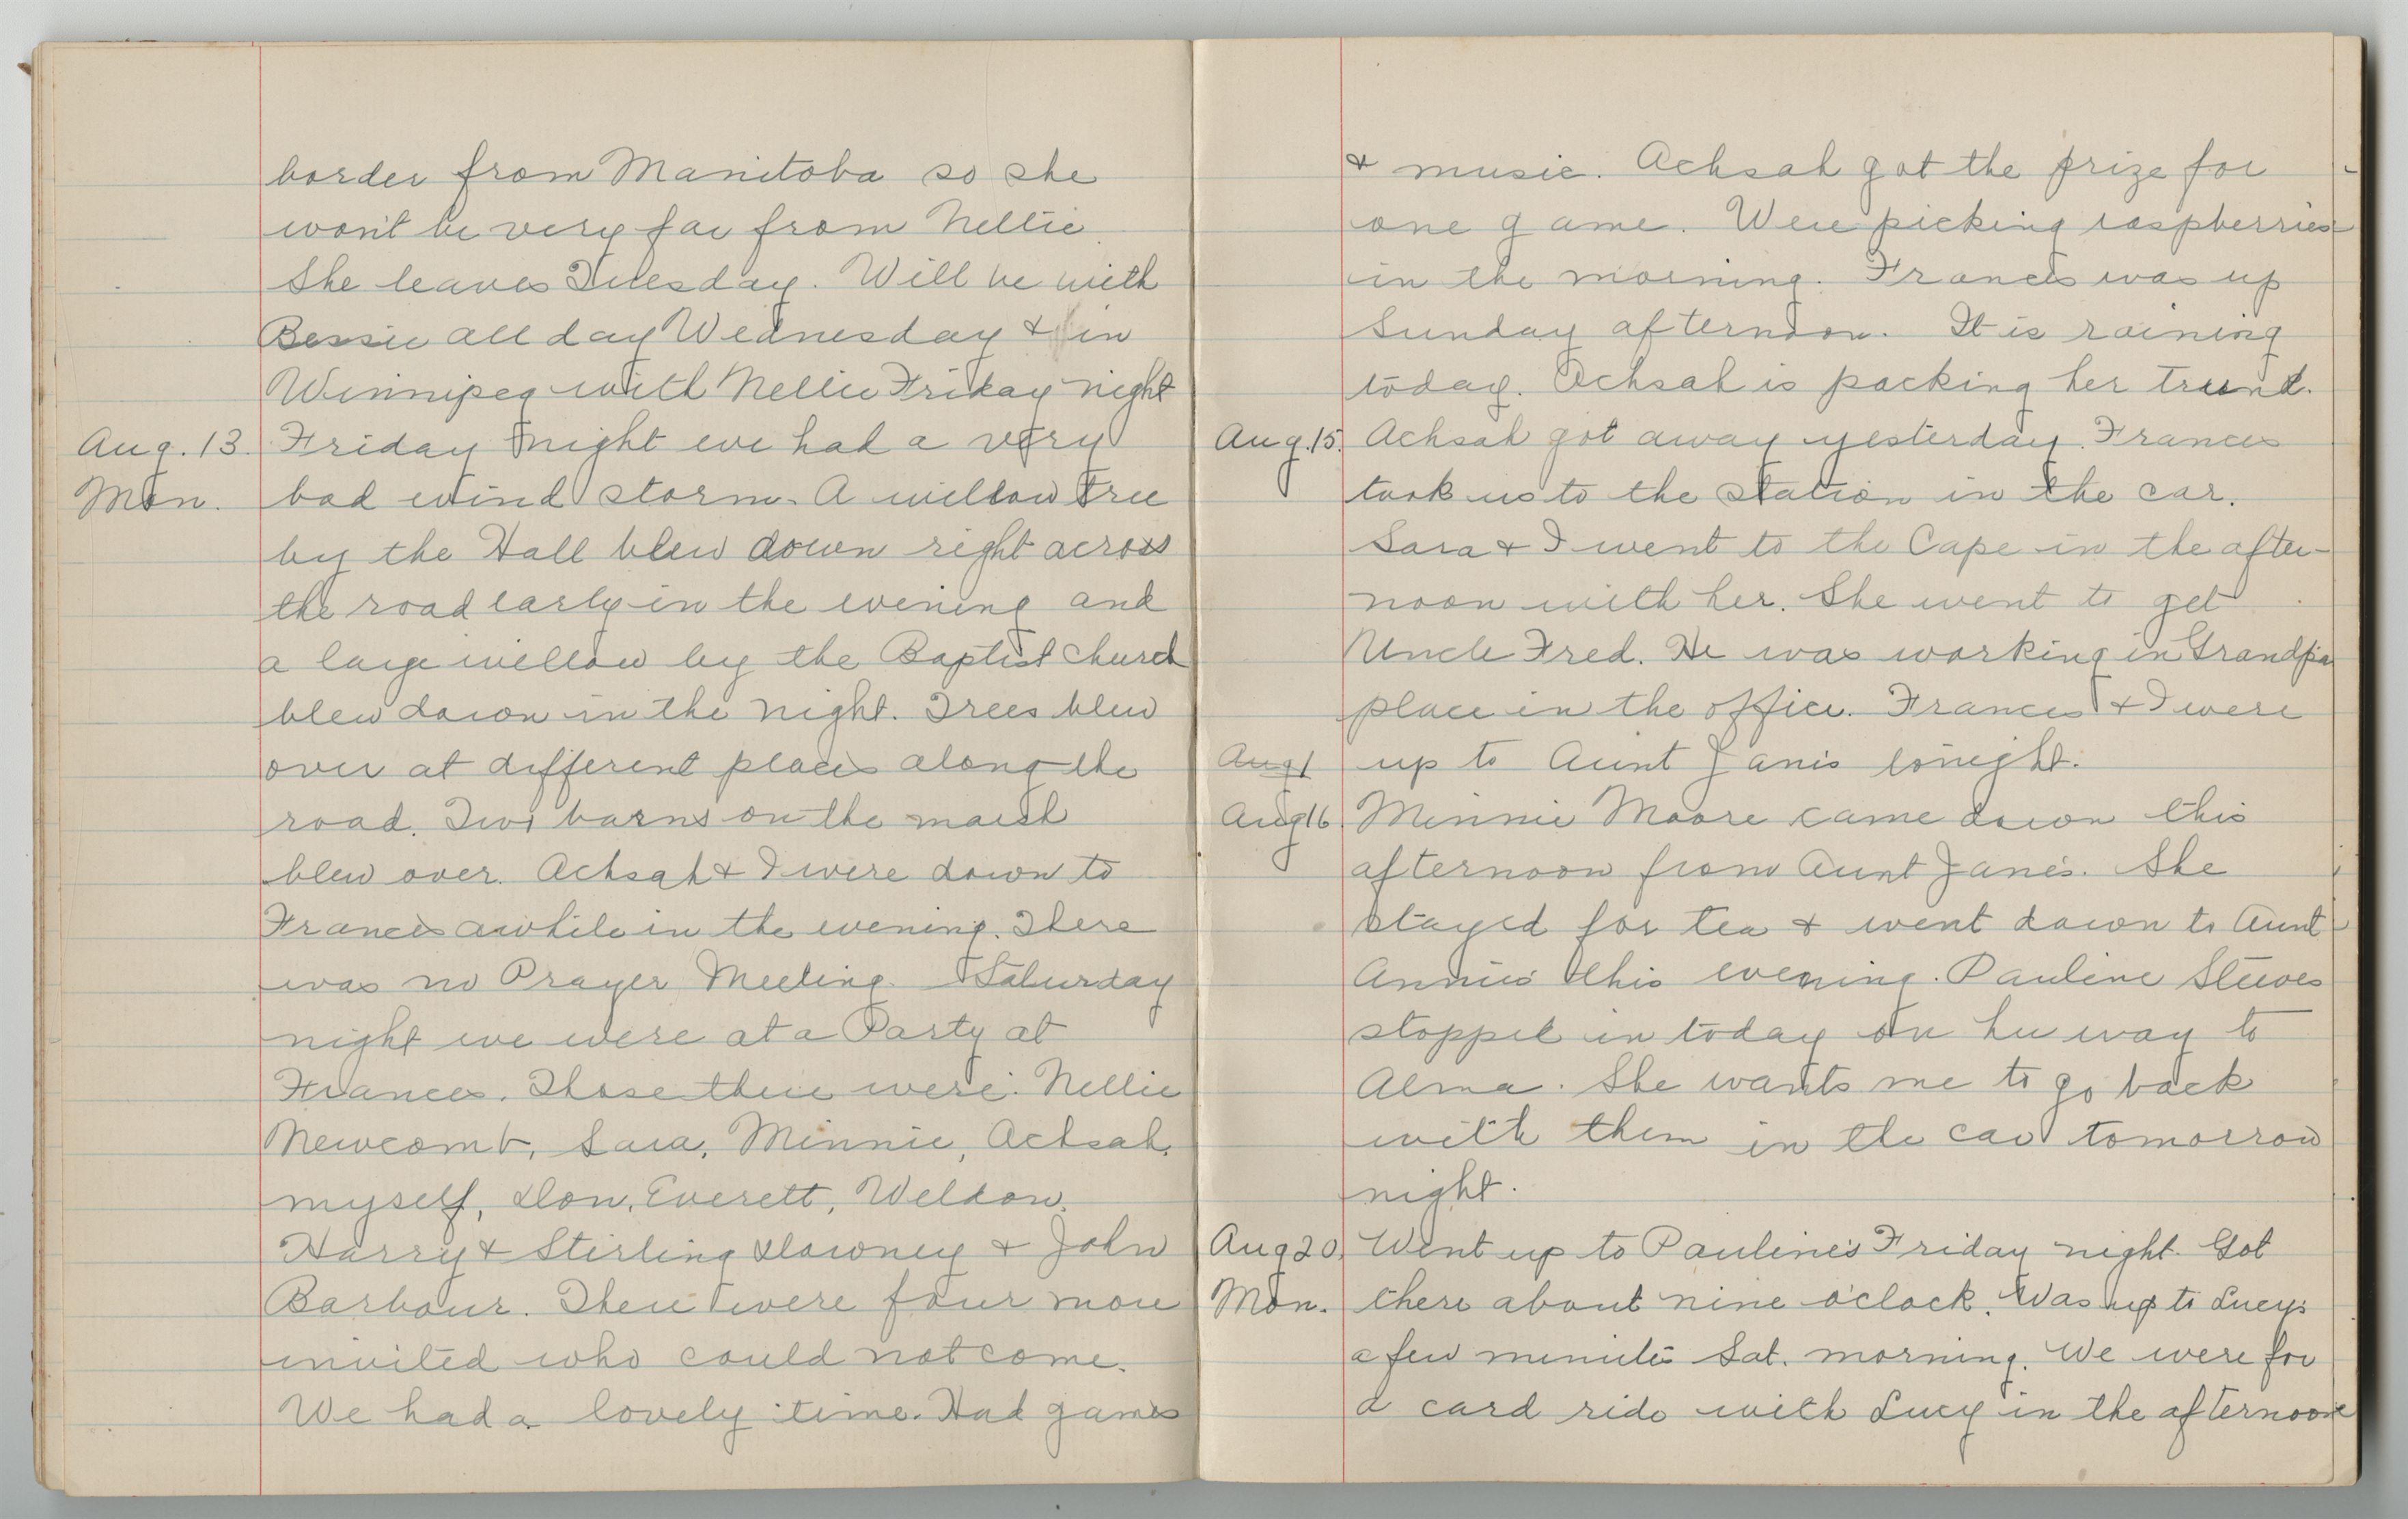 border from Manitoba so she
won't be very far from Nellie.
She leaves Tuesday. Will be with
Bessie all day Wednesday & in
Winnipeg with Nellie Friday night
Aug. 13. Friday night we had a very
Mon. bad wind storm. A willow tree
by the Hall blew down right across
the road early in the evening and
a large willow by the Baptist church
blew down in the night. Trees blew
over at different places along the
road. Two barns on the marsh
blew over. Achsah & I were down to
Frances awhile in the evening. There
was no Prayer Meeting. Saturday
night we were at a Party at
Frances. Those there were: Nellie
Newcomb, Sara, Minnie, Achsah,
myself, Don, Everett, Weldon,
Harry & Stirling Downey & John
Barbour. There were four more
invited who could not come.
We had a lovely time. Had games
& music. Achsah got the prize for
one game. Were picking raspberries
in the morning. Frances was up
Sunday afternoon. It is raining
today. Achsah is packing her trund.
Aug. 15. Achsah got away yesterday. Frances
took us to the station in the car.
Sara & I went to the Cape in the after-
noon with her. She went to get
Uncle Fred. He was working in Grandpa
place in the office. Frances & I were
Aug 1 up to Aunt Janis tonight.
Aug 16 Minnie Moore came down this
afternoon from Aunt Jane's. She
stayed for tea & went down to Aunt
Annie's this evening. Pauline Steeves
stopped in today on her way to
Alma. She wants me to go back
with them in the car tomorrow
night.
Aug 20. Went up to Pauline's Friday night. Got
Mon. there about nine o'clock. Was up to Lucy's
a few minutes Sat. morning. We were for
a card ride with Lucy in the afternoon